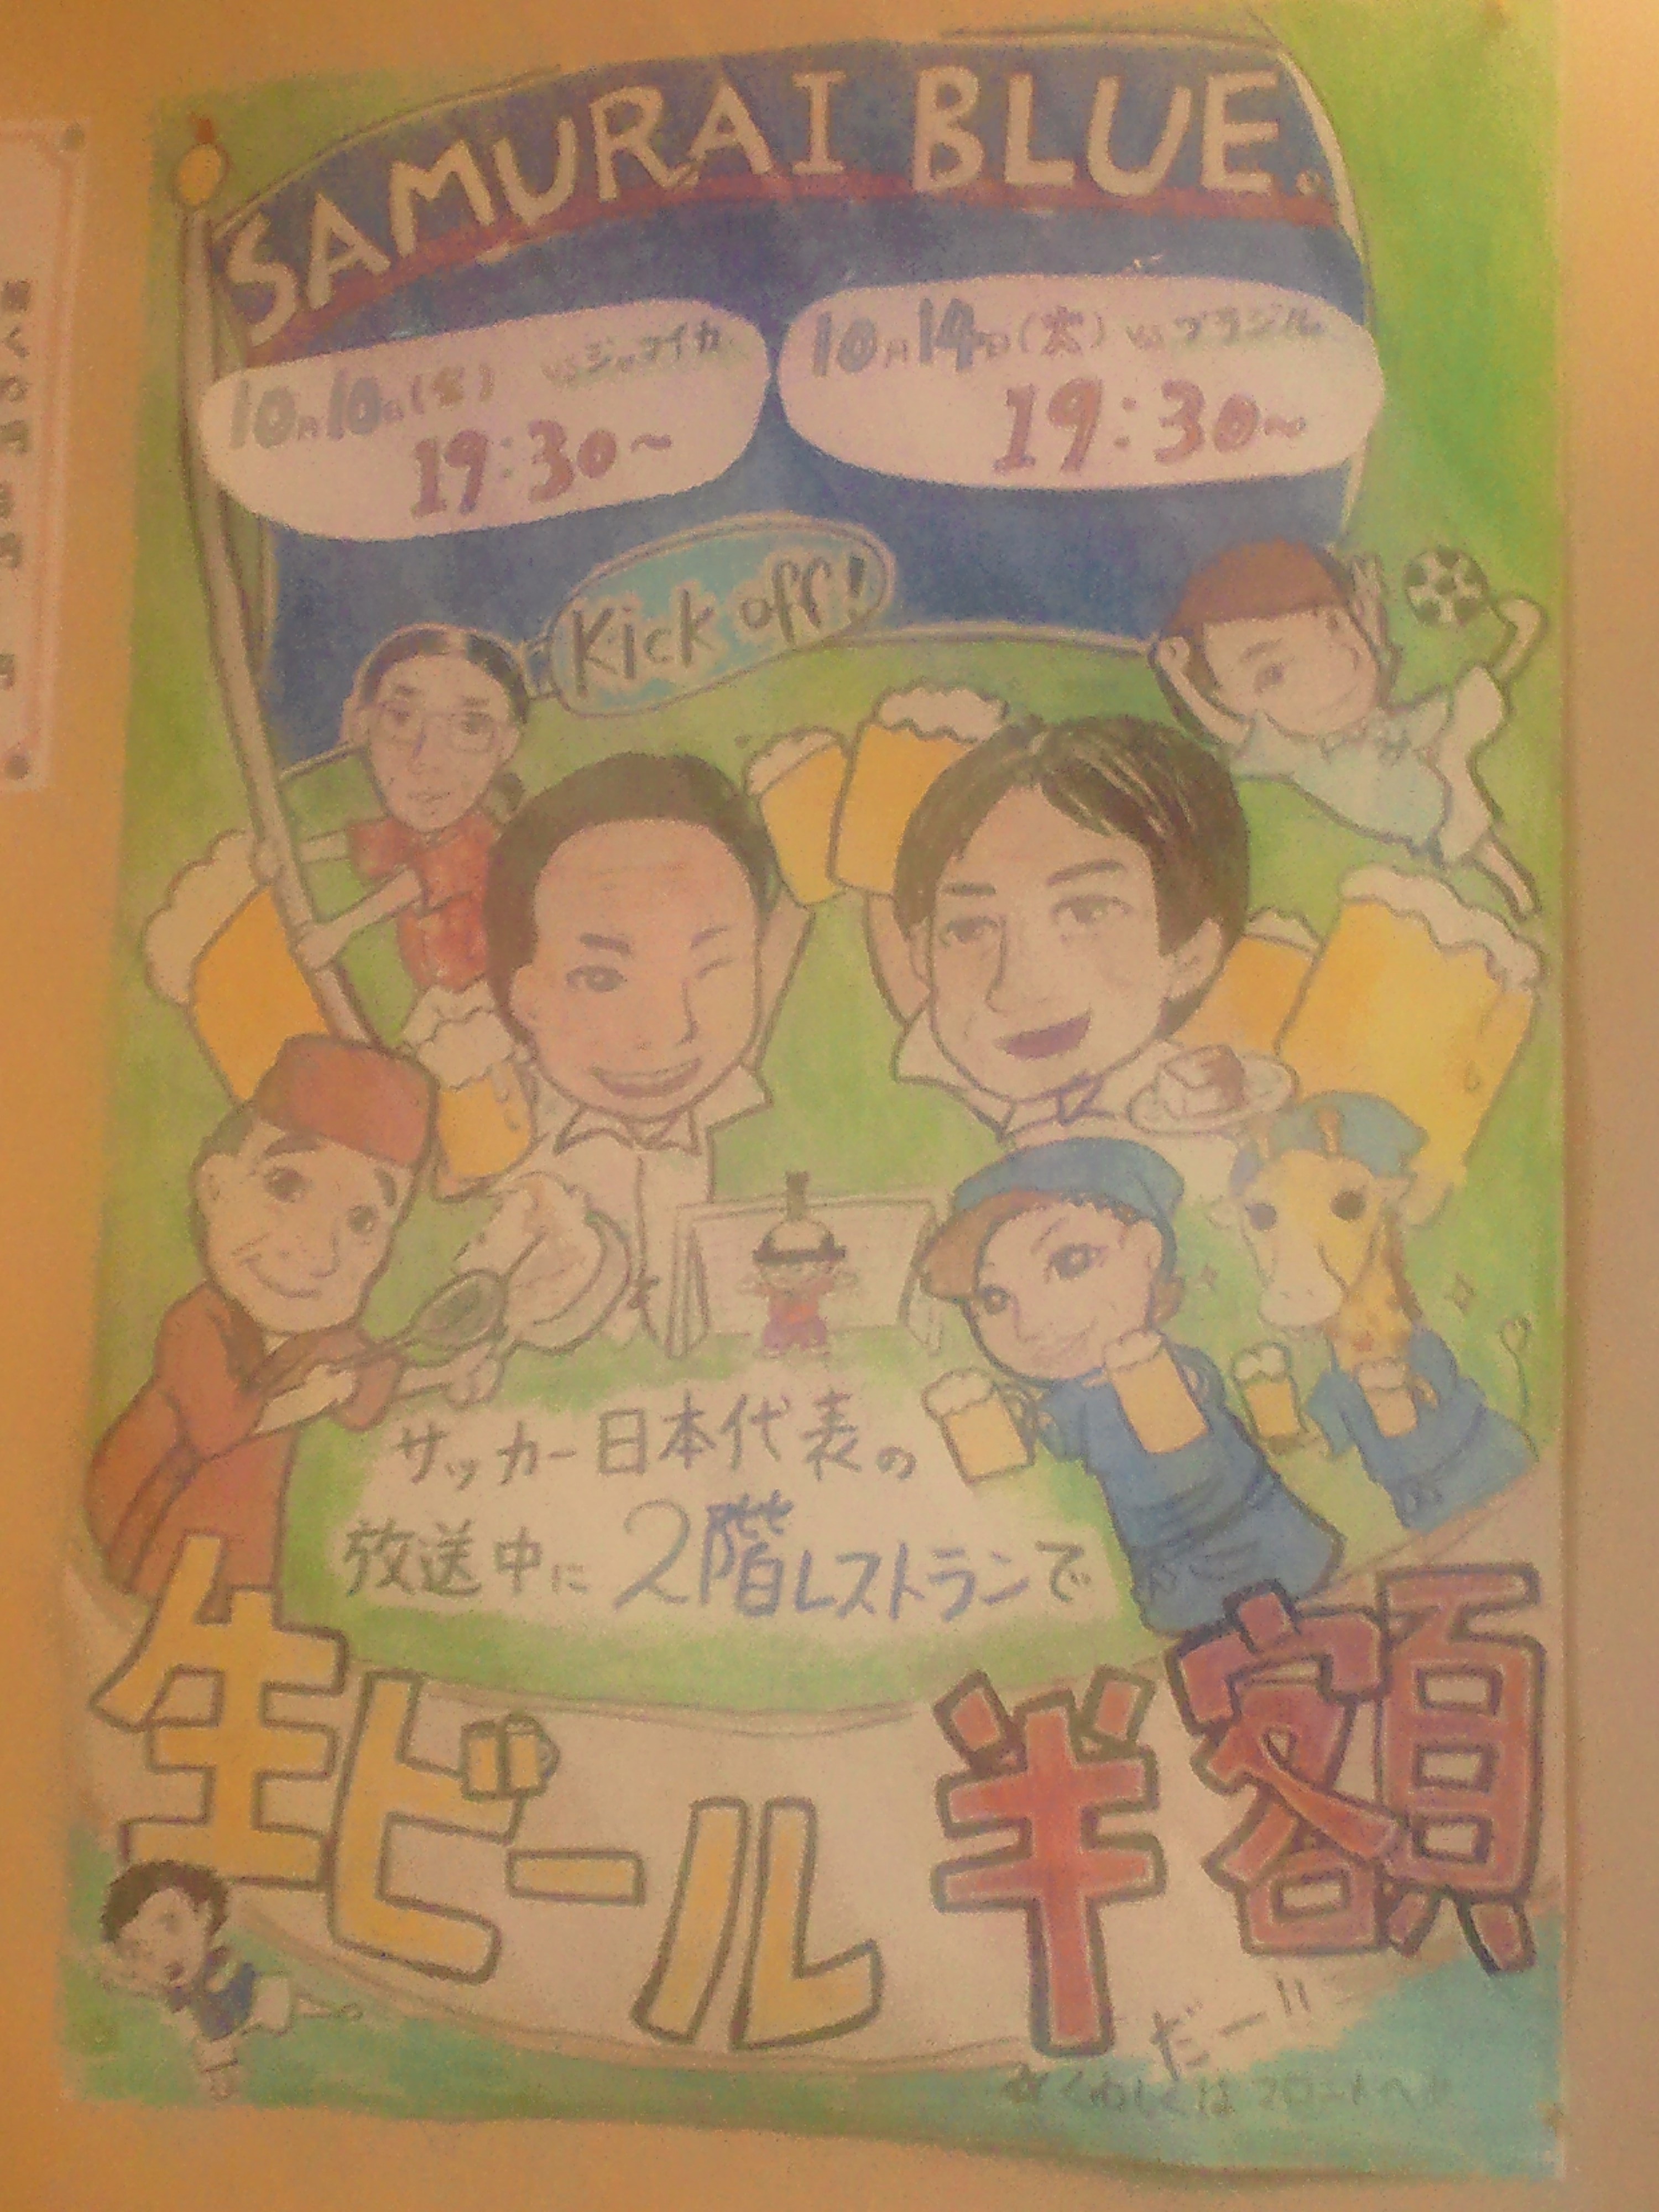 SAMURAI BLUE.
10月10日(金) vsジャマイカ
19:30~
10月14日(火) vsブラジル
19:30~
Kick off!
サッカー日本代表の
放送中に2階レストランで
生ビール 半額
だー!!
☆くわしくはフロントへ☆